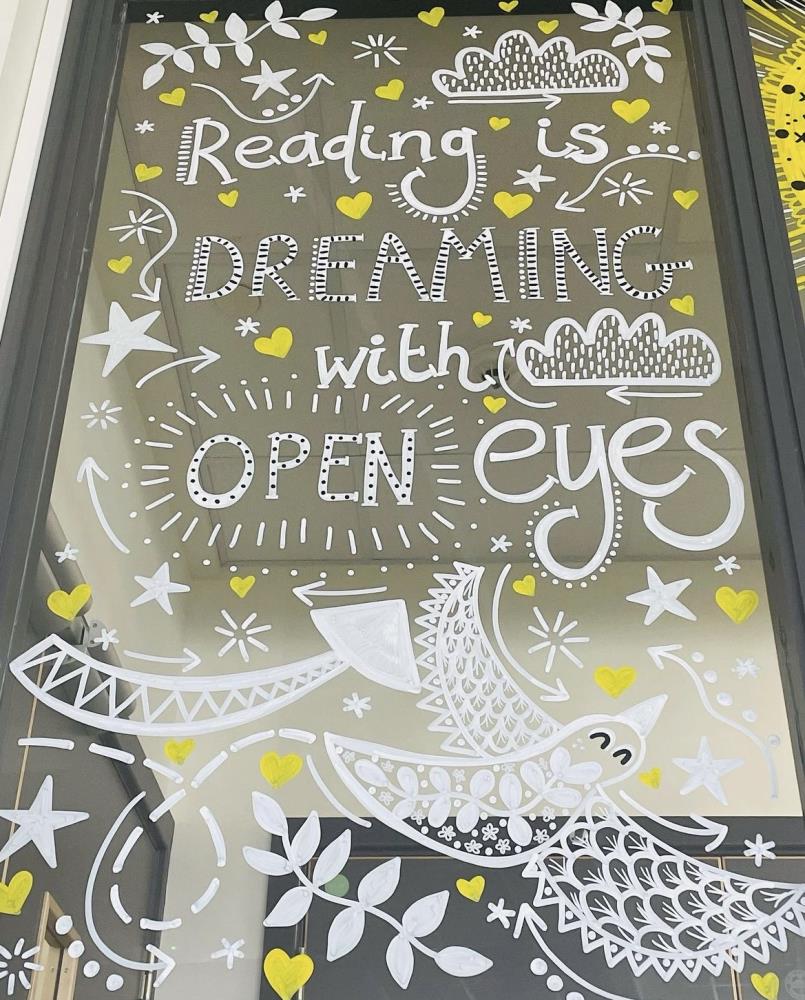 Reading is
DREAMING
with
OPEN eyes